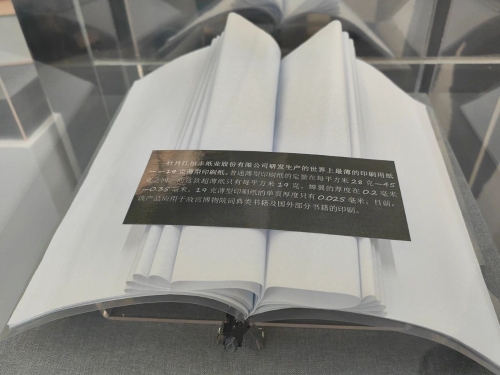 牡丹江恒丰纸业股份有限公司研发生产的世界上最薄的印刷用纸
——19克薄型印刷纸。普通薄型印刷纸的定量在每平方米28克—45
克之间，而这款超薄纸只有每平方米19克，蝉翼的厚度在0.2毫米
—0.35毫米，19克薄型印刷纸的单页厚度只有0.025毫米，目前，
该产品应用于故宫博物院词典类书籍及国外部分书籍的印刷。